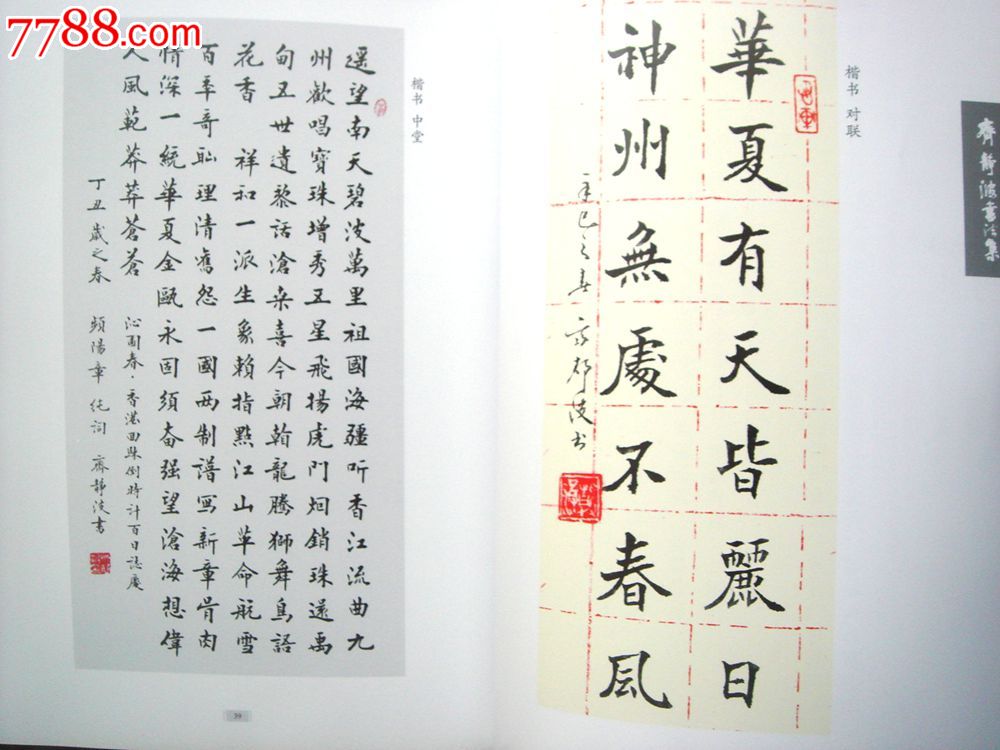 7788.com
楷书 中堂
遥望南天碧波萬里祖國海疆听香江流曲九
州歡唱寶珠增秀五星飛揚虎門炯銷珠還禹
甸丑世遺黎話滄桑喜今朝翰龍騰獅舞鳥語
花香 祥和一派生象賴指點江山革命航雪
百年奇恥理清舊怨一國兩制譜寫新章骨肉
情深一統華夏金甌永固須奋强望滄海想偉
人風範莽莽蒼蒼
沁園春·香港回歸倒時計百日誌慶
丁丑歲之春 頻陽章純詞 齊靜波書
39
齊靜波書法集
楷书 对联
華夏有天皆麗日
神州無處不春風
辛巳之春 齊靜波书